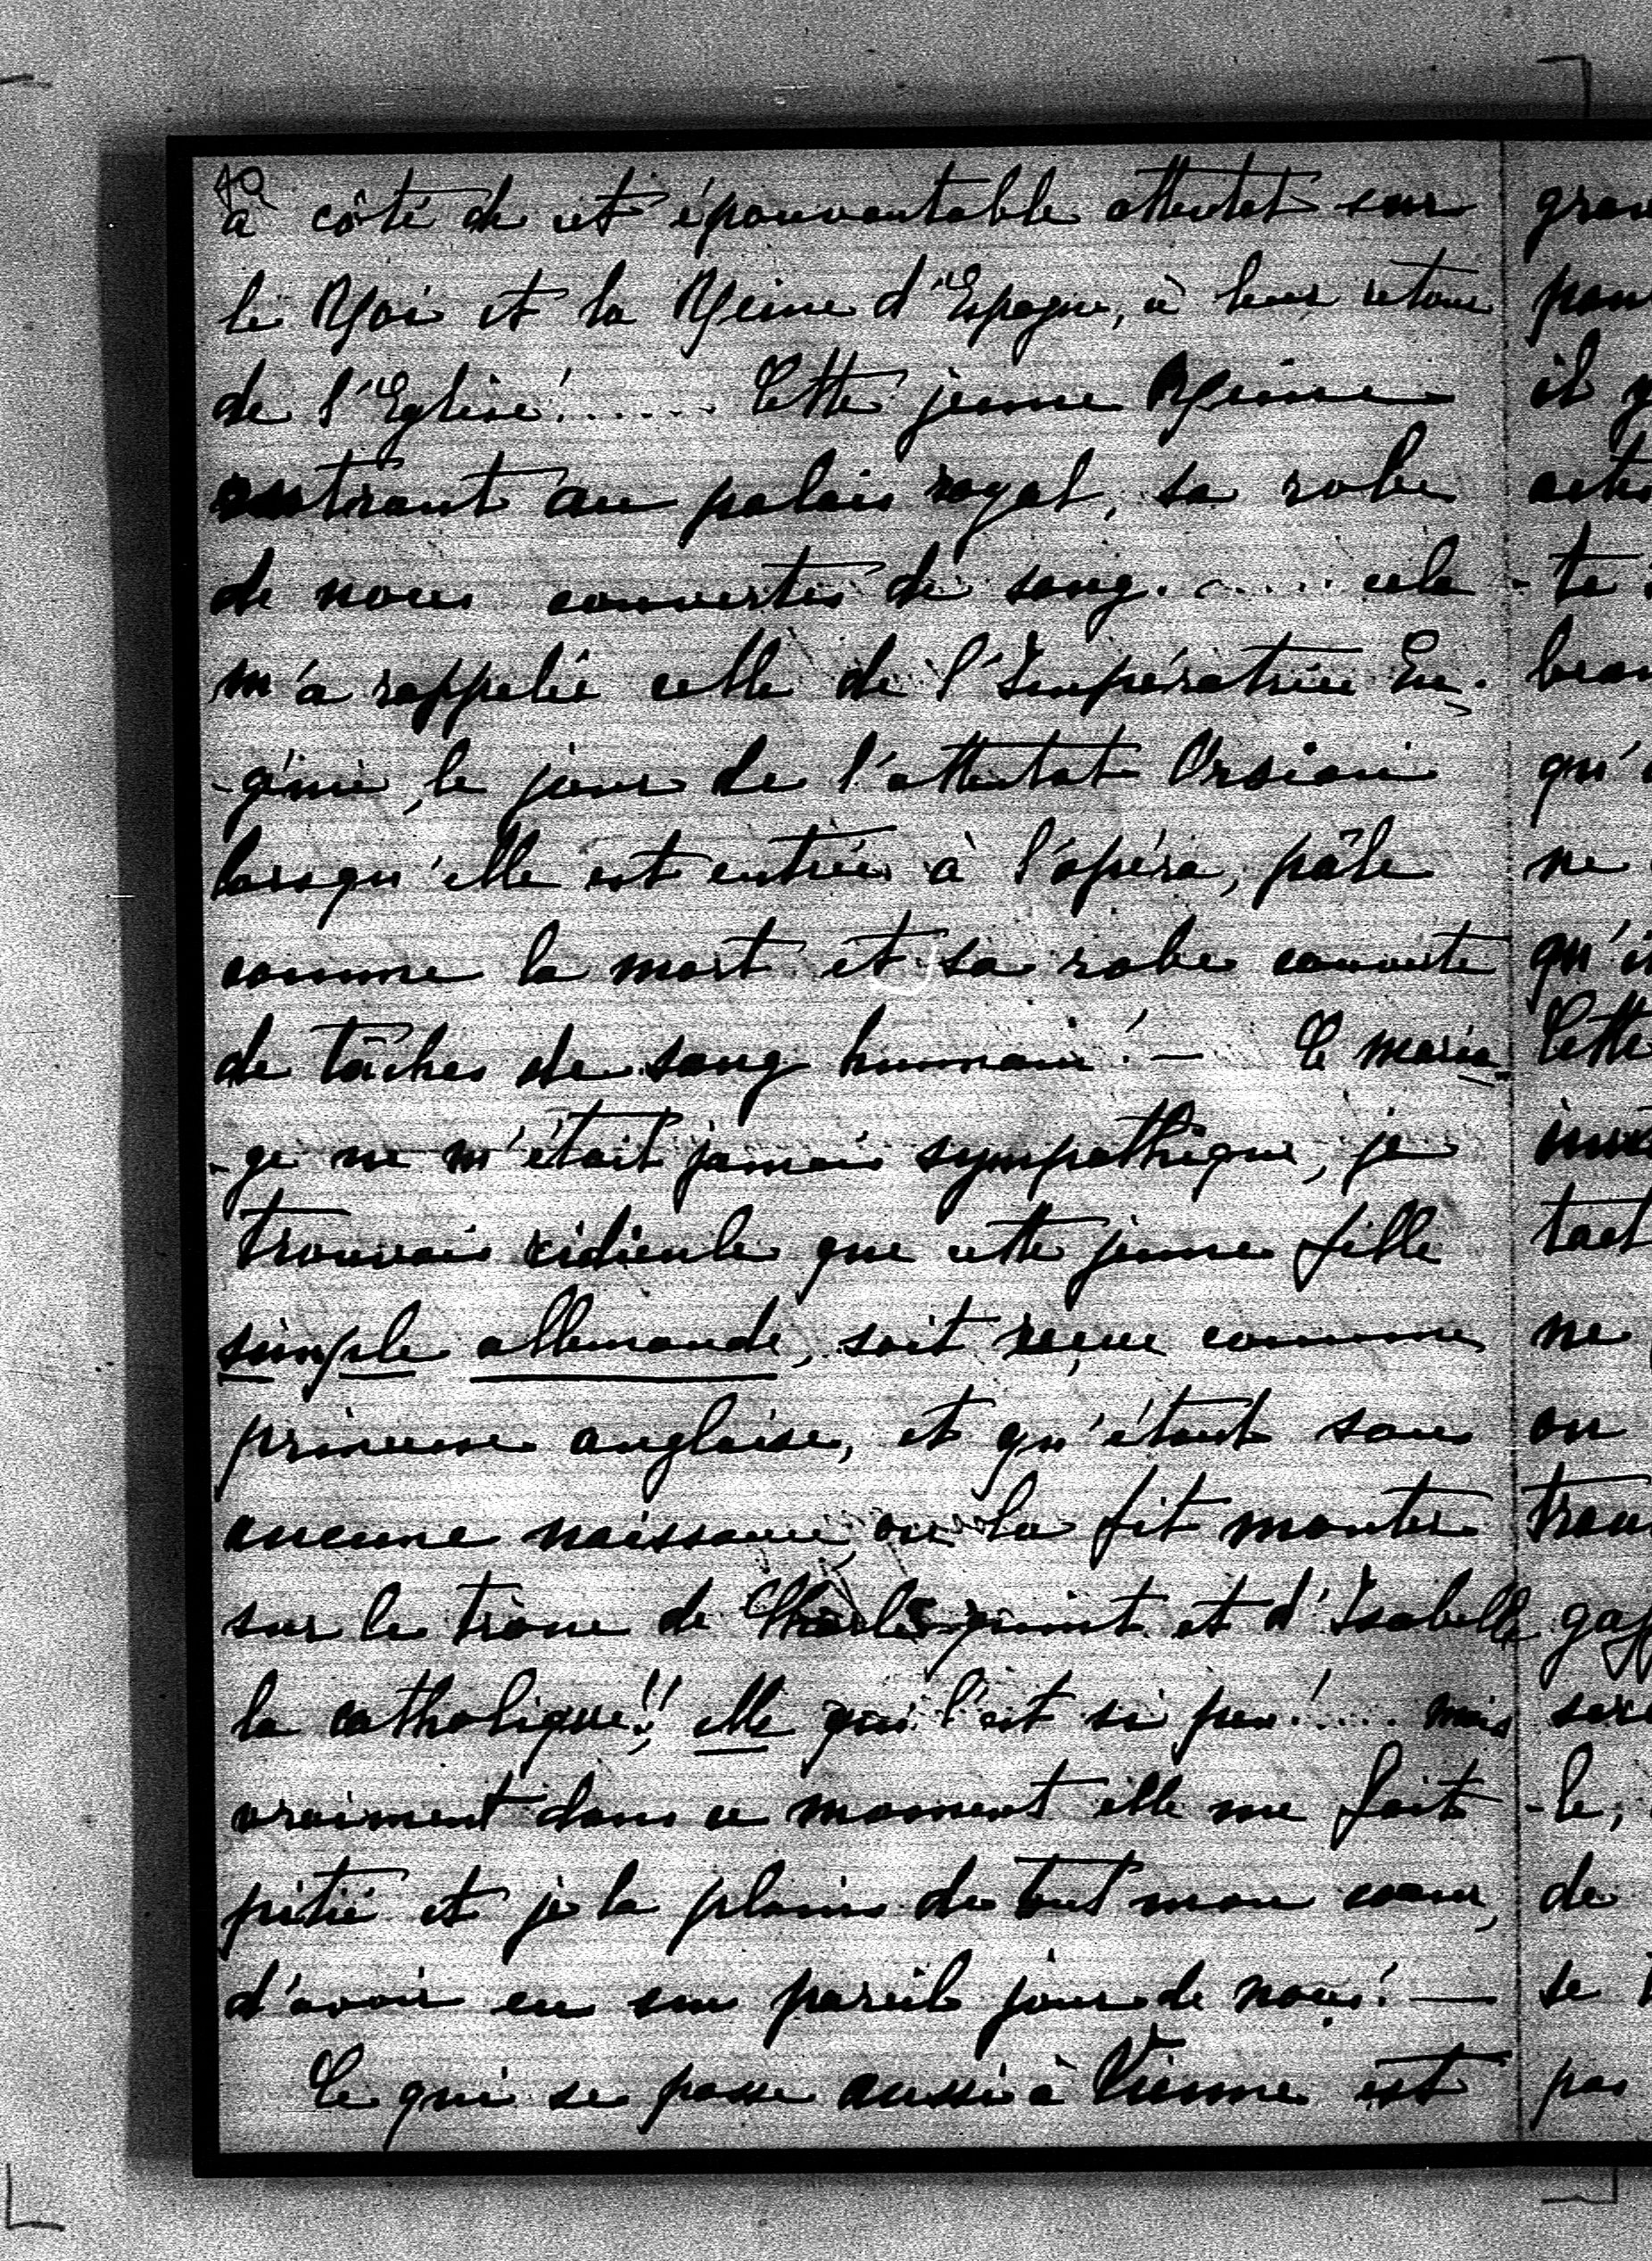 40
à côté de cet épouvantable attentat sur
le Roi et la Reine d'Espagne, à leur retour
de l'Eglise!...... Cette jeune Reine
rentrant au palais royal, sa robe
de noces couvertes de sang...... cela
m'a rappelé celle de l'Impératrice Eu-
-génie, le jour de l'attentat Orsini
lorsqu'elle est entrée à l'opéra, pâle
comme la mort et sa robe couverte
de tâches de sang humain! — Ce maria-
-ge ne m'était jamais sympathique, je
trouvais ridicule que cette jeune fille
simple allemande, soit reçue comme
princesse anglaise, et qu'étant sans
aucune naissance, on la fit monter
sur le trône de Charles quint et d'Isabelle
la catholique!! elle qui l'est si peu!..... mais
vraiment dans ce moment elle me fait
pitié et je la plains de tout mon coeur,
d'avoir eu un pareil jour de noces! —
Ce qui se passe aussi à Vienne est
pour
il
-te
qu'
ne
Cette
tact
ne
on
-le,
de
se
pas